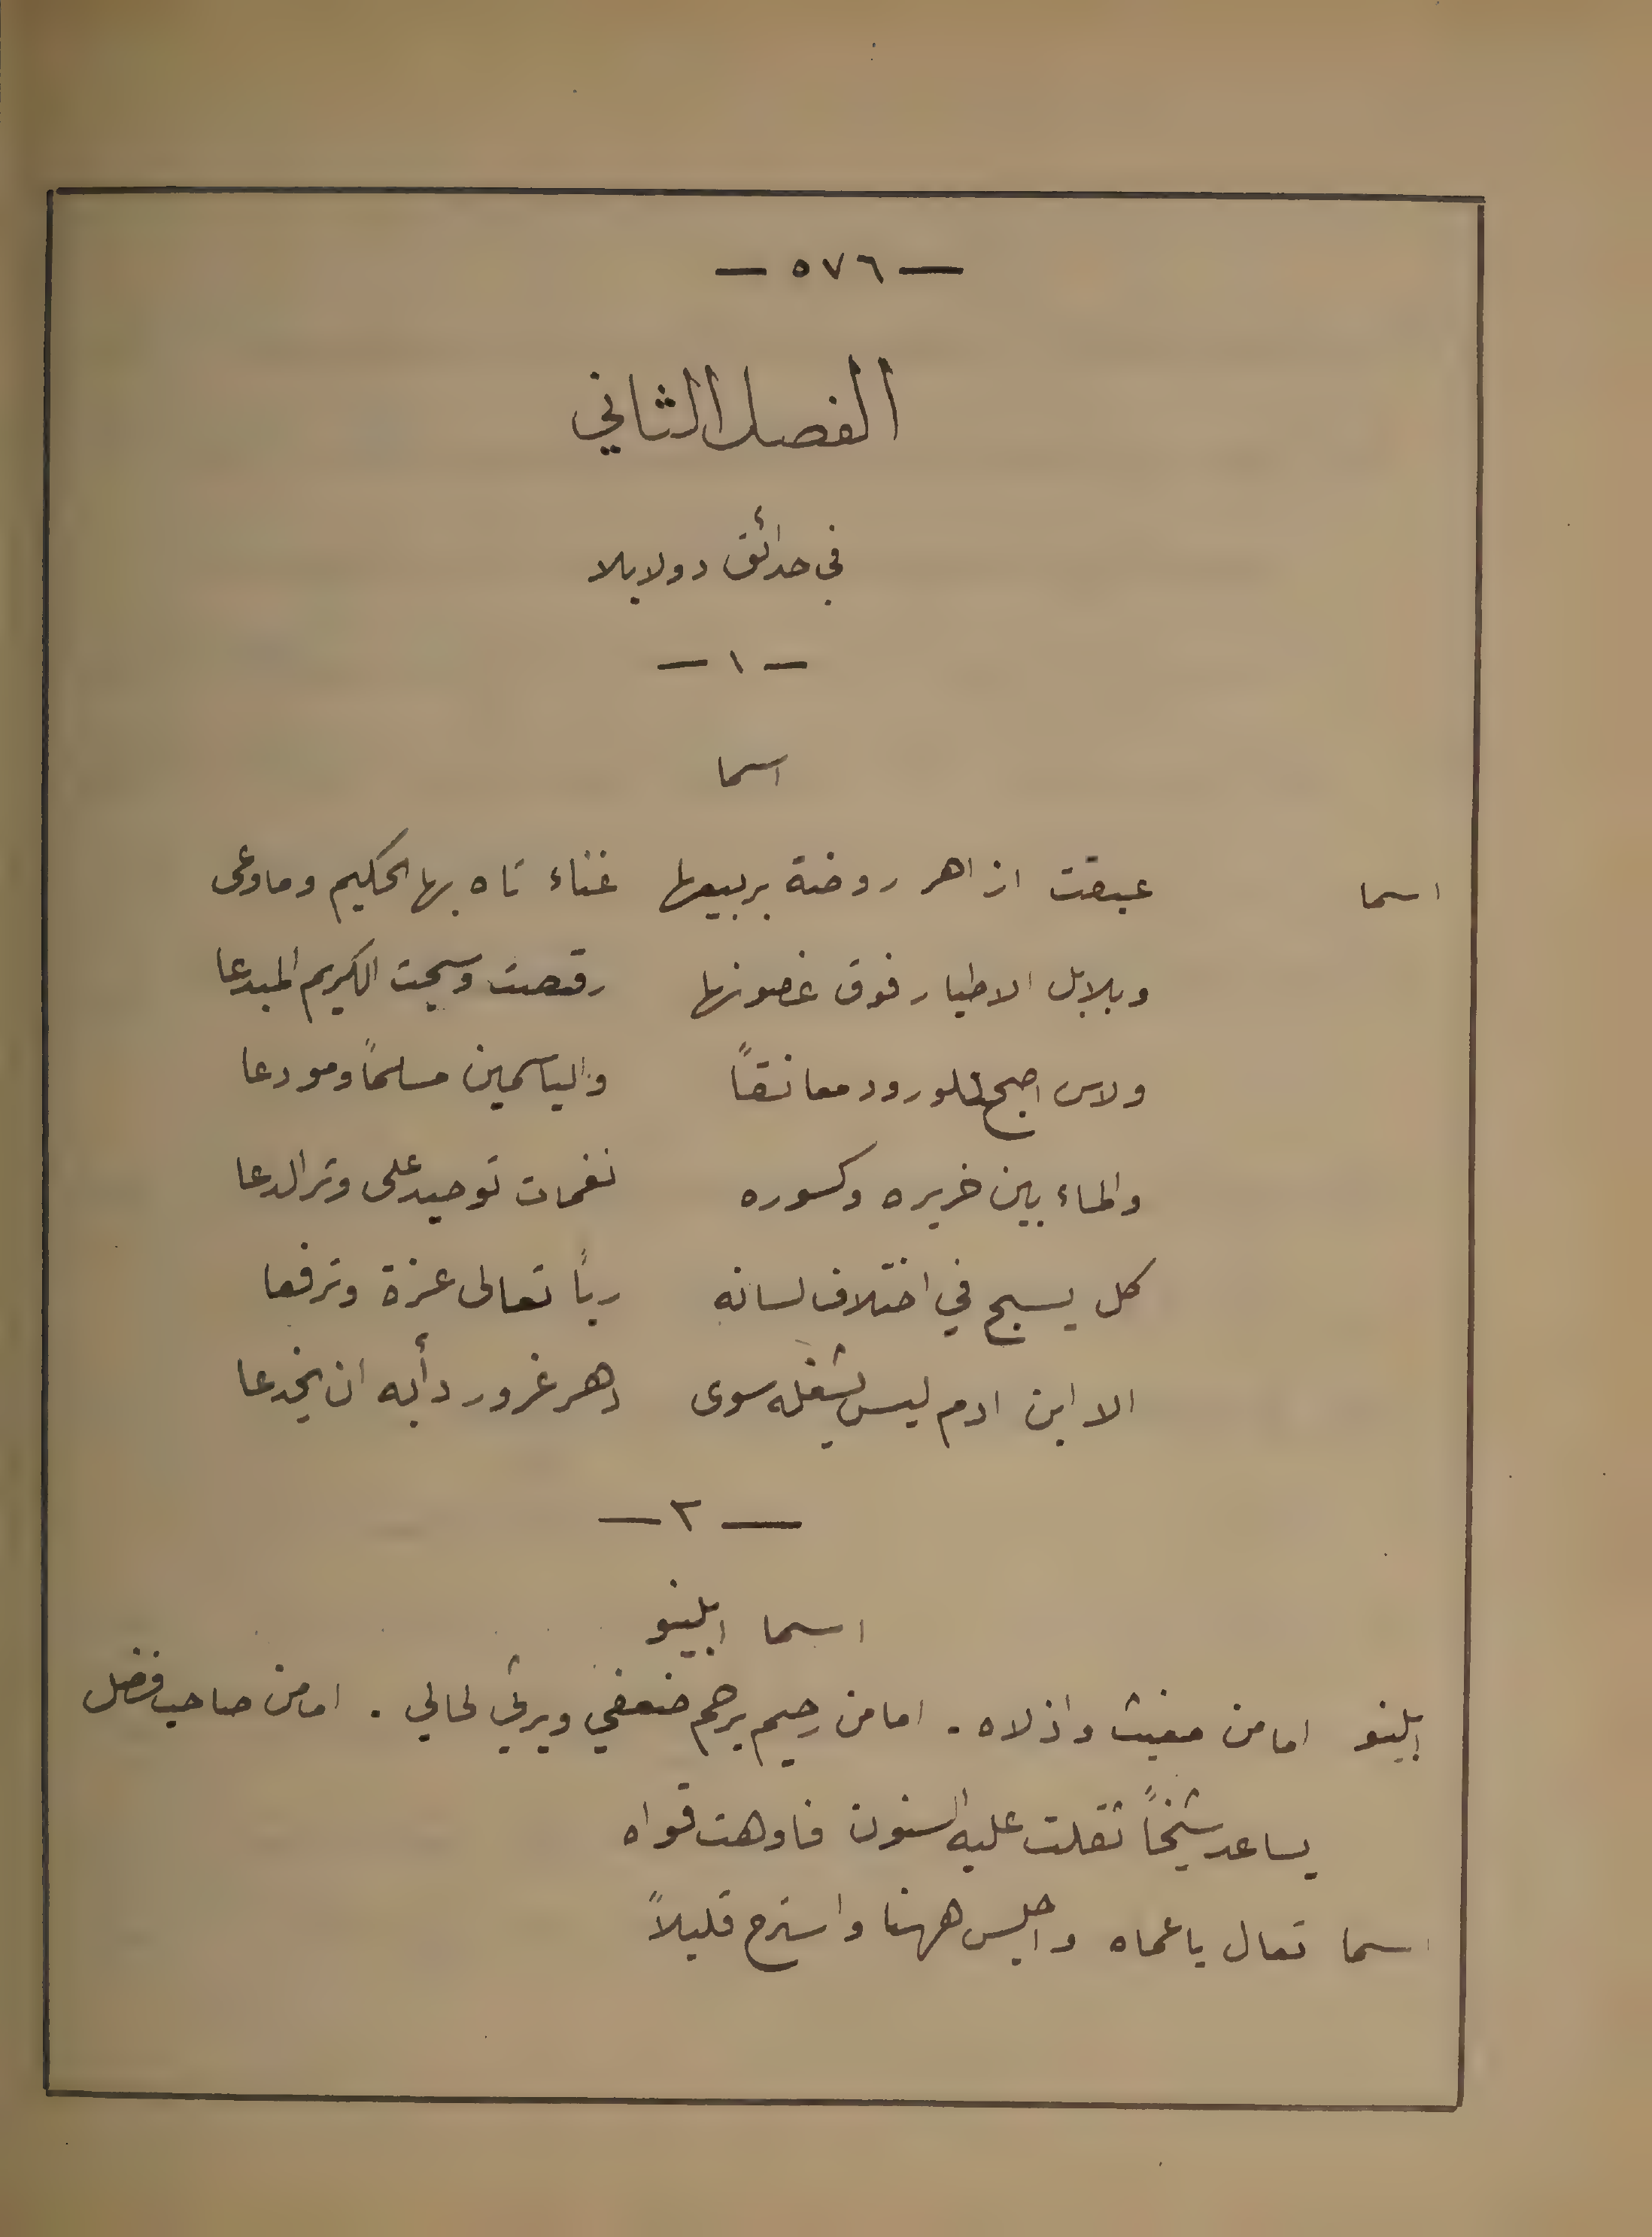 — ٥٧٦ —
الفصل الثاني
في حدائق دولابلا
— ١ —
اسما
اسما عبقت ازاهر روضة بربيعها غناء تاه بها الحكيم وما وعى
وبلابل الاطيار فوق غصونها رقصت وسبحت الكريم المبدعا
ولاس اصبح للورود معانقاً والياسمين مسلماً ومودعا
والماء بين خريره وكسوره نغمات توحيد على وتر الدعا
كل يسبح في اختلاف لسانه رباً تعالى عزة وترفعا
الا ابن ادم ليس يشغله سوى دهر غرور دأبه ان يخدعا
— ٢ —
اسما ابلينو
ابلينو اما من مغيث واذلاه . اما من رحيم يرحم ضعفي ويرثي لحالي . اما من صاحب فضل
يساعد شيخاً ثقلت عليه السنون فاوهت قواه
اسما تعال يا عماه واجلس ههنا واسترح قليلاً